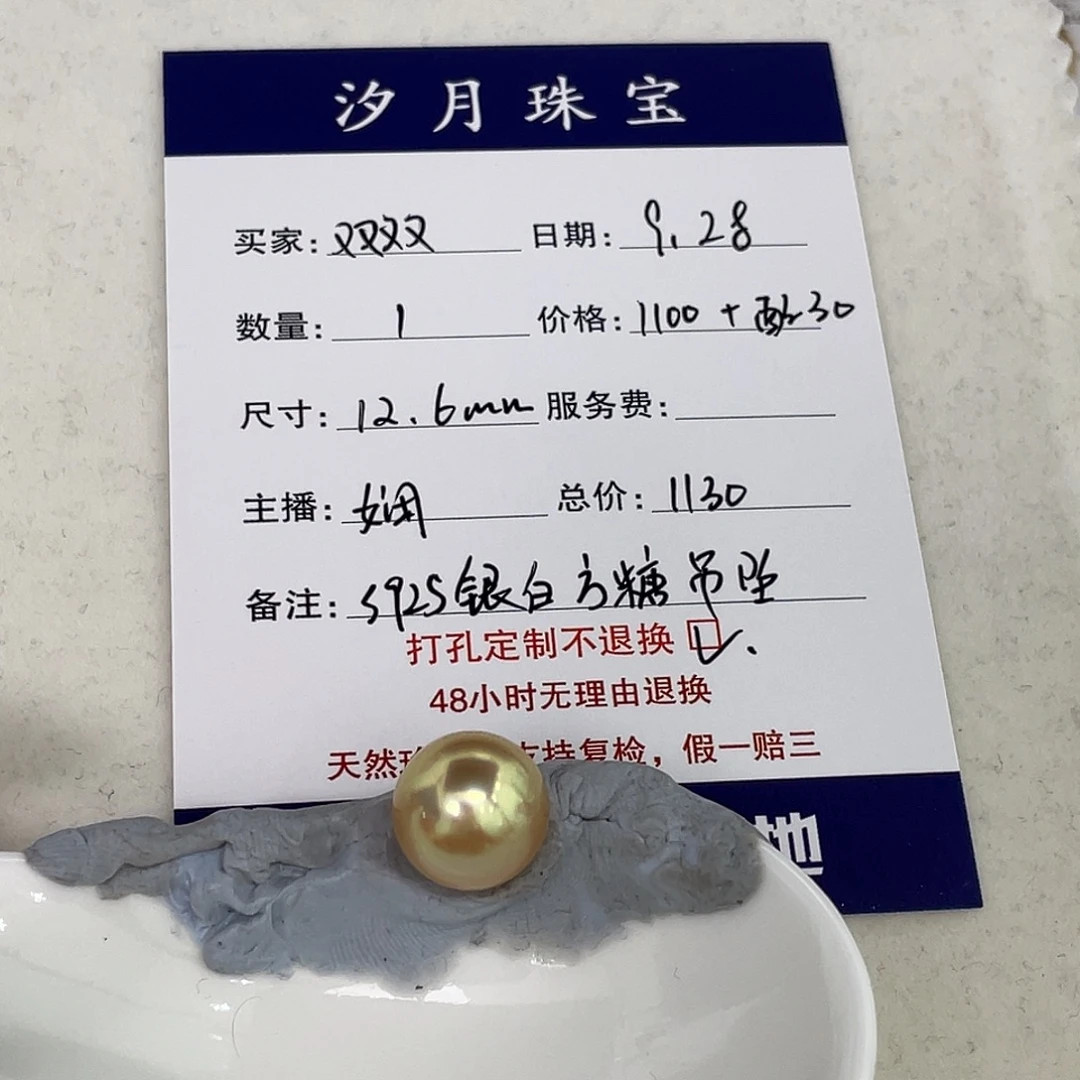 汐月珠宝
买家: 双双 日期: 9.28
数量: 1 价格: 1100 + 配30
尺寸: 12.6mm 服务费:
主播: 娴 总价: 1130
备注: S925银白方糖吊坠
打孔定制不退换
48小时无理由退换
天然 支持复检，假一赔三
地